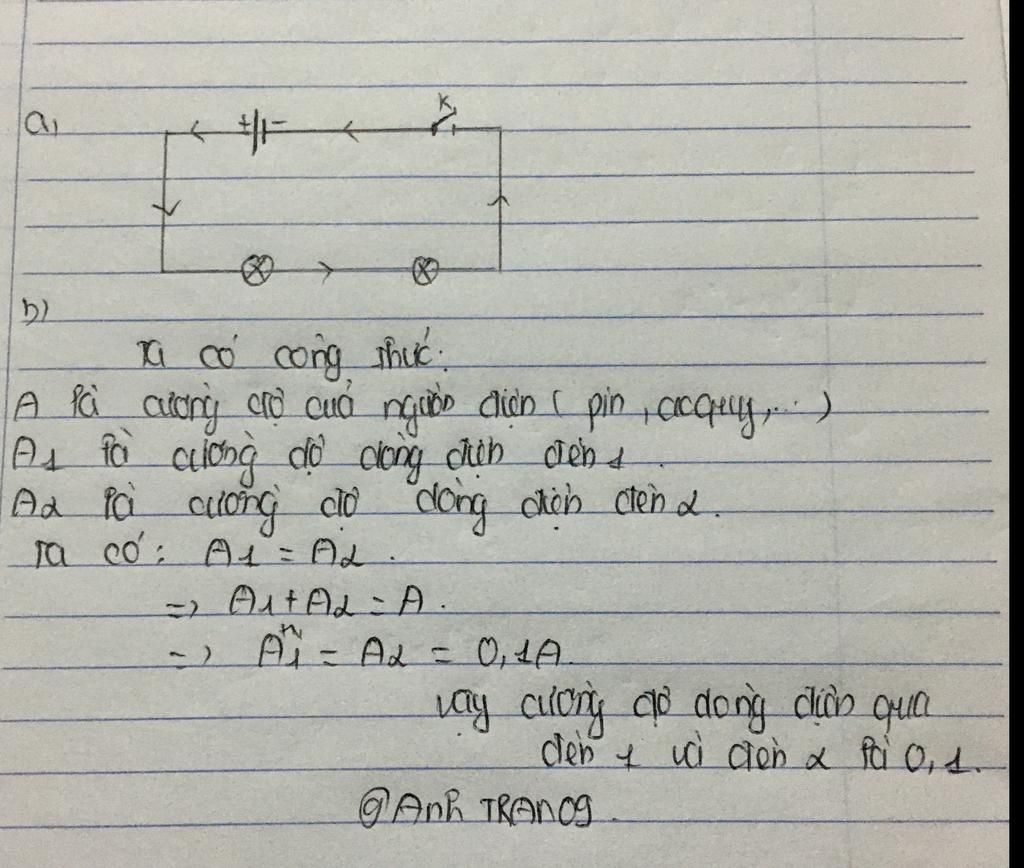 a,
+ -
K
b)
Ta có công thức:
A là cường độ của nguồn điện ( pin, acquy,... )
A1 là cường độ dòng điện đèn 1.
A2 là cường độ dòng điện đèn 2.
Ta có: A1 = A2.
=> A1 + A2 = A.
=> A1 = A2 = 0,1A.
vậy cường độ dòng điện qua
đèn 1 và đèn 2 là 0,1.
@Anh TRAN09.